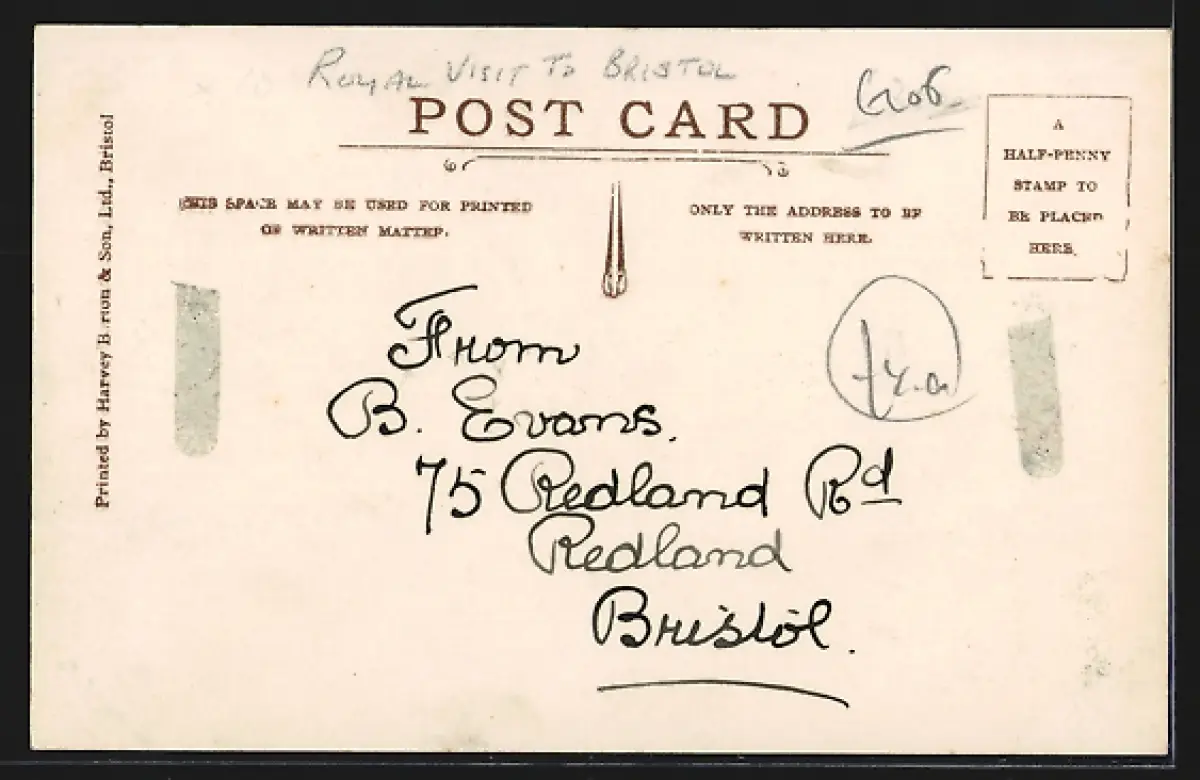 ROYAL VISIT TO BRISTOL
POST CARD
THIS SPACE MAY BE USED FOR PRINTED
OR WRITTEN MATTER.
ONLY THE ADDRESS TO BE
WRITTEN HERE.
A
HALF-PENNY
STAMP TO
BE PLACED
HERE.
Printed by Harvey Barton & Son, Ltd., Bristol
From
B. Evans.
75 Redland Rd
Redland
Bristol.